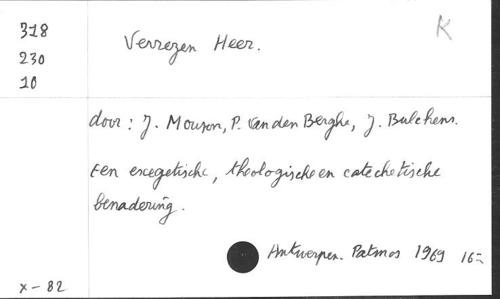 318
230
10
K
Verrezen Heer.
door: J. Mouson, P. Van den Berghe, J. Bulckens.
Een exegetische, theologische en catechetische
benadering.
Antwerpen. Patmos 1969 16=
x-82